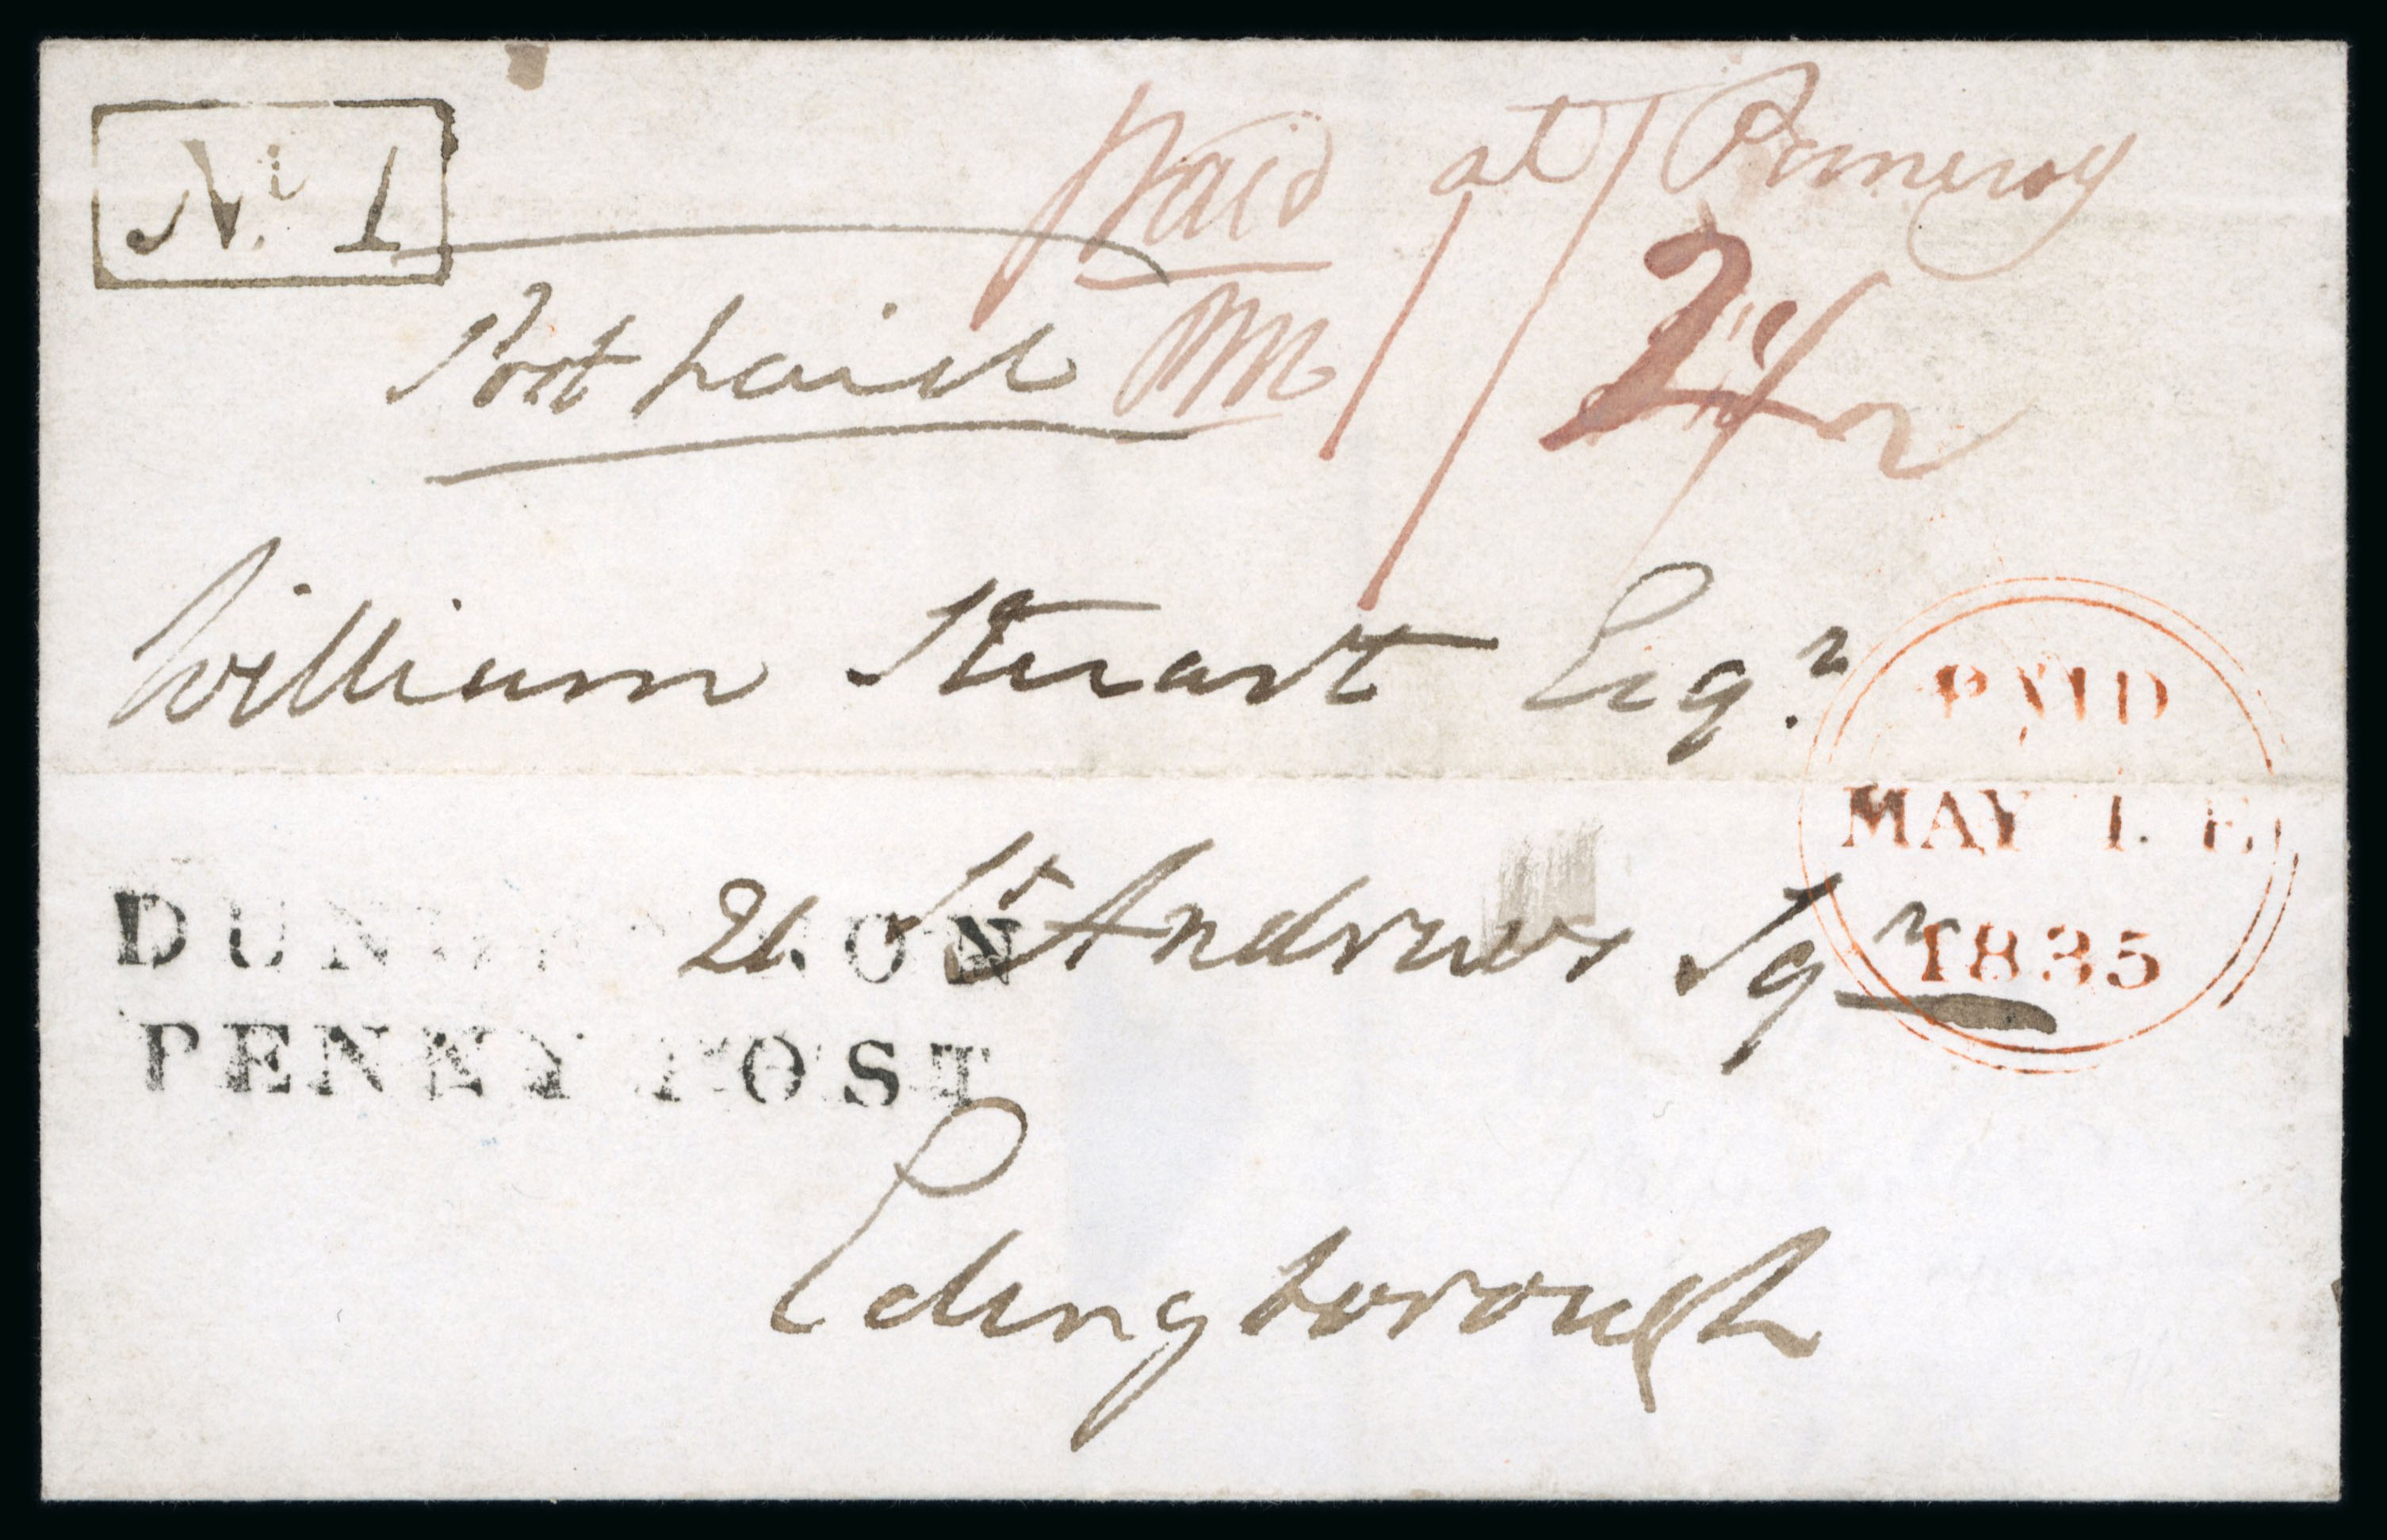 No. 1
Paid at Pomeroy
Post paid
2
William Stuart Esqr.
PAID
MAY 1. E
1835
21 St Andrews Sqr
DUNGANNON
PENNY POST
Edingborough